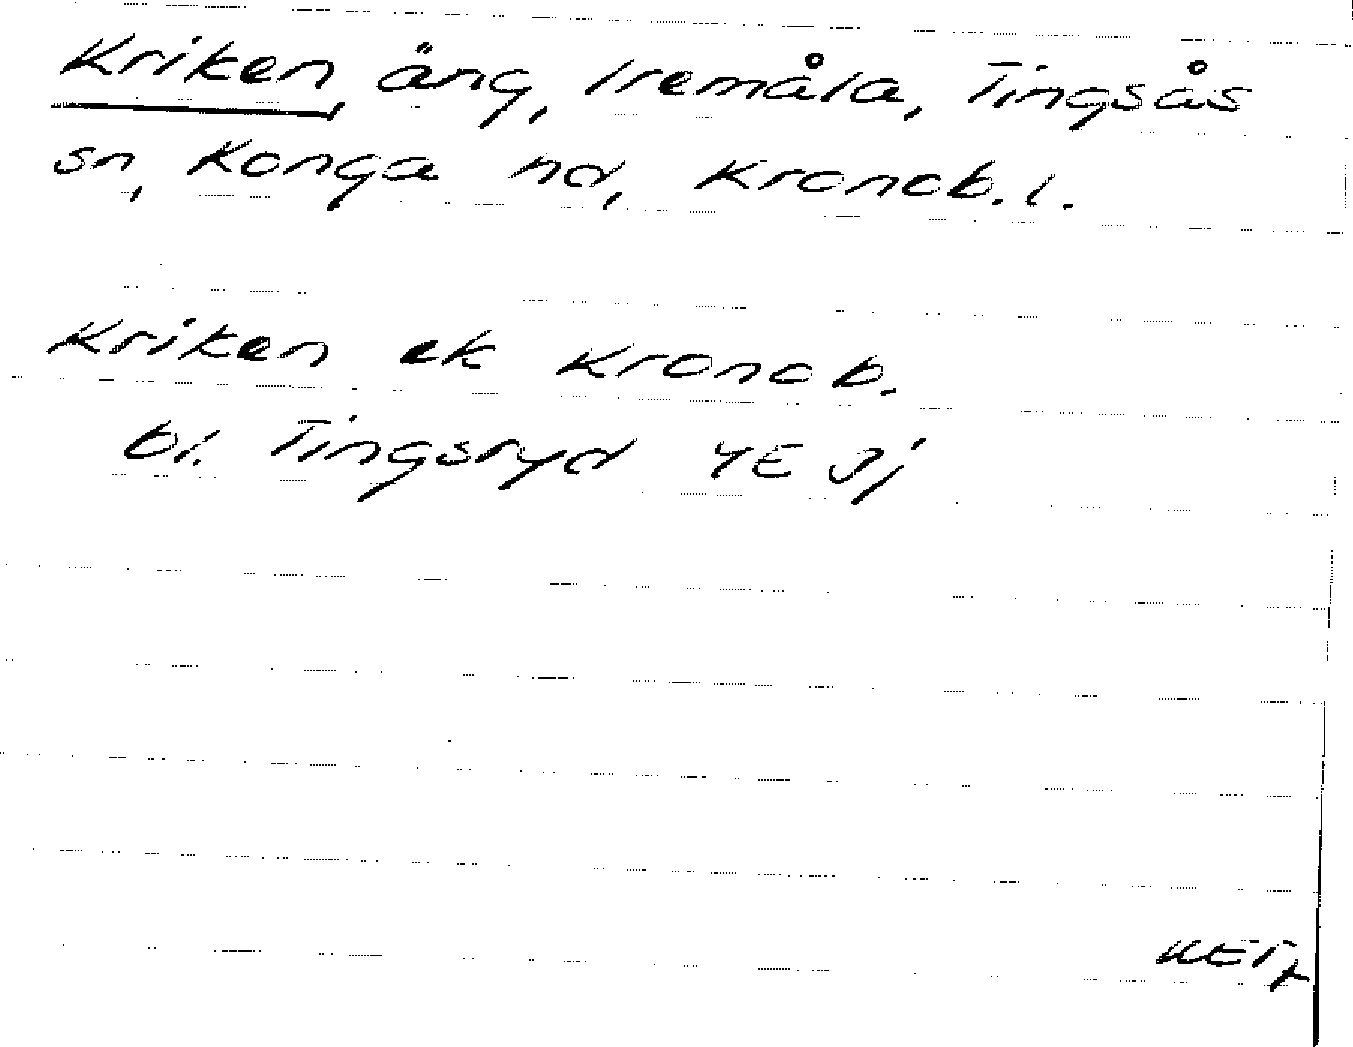 Kriken, äng, Iremåla, Tingsås
sn, Konga hd, Kronob. l.
Kriken ek Kronob.
bl. Tingsryd 4E 9j